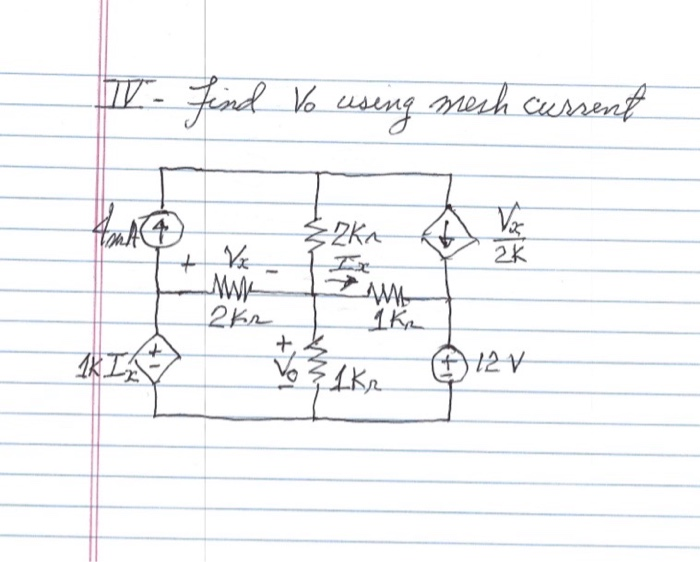 IV- Find Vo using mesh current
4mA
2KΩ
Vx
2K
+ Vx -
Ix
2KΩ
1KΩ
1KIx
+
-
+
Vo
-
1KΩ
+
-
12 V